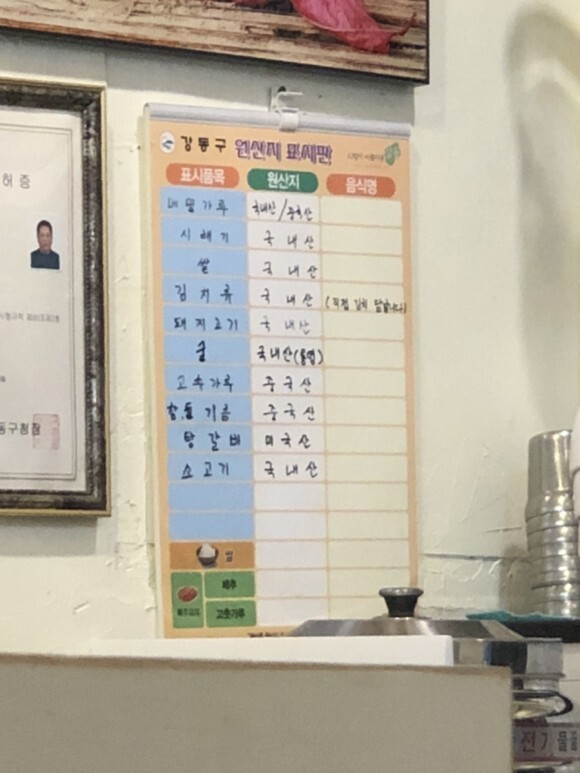 허 증
동구청장
강동구 원산지 표시판
표시품목 원산지 음식명
메밀가루 국내산/중국산
시래기 국내산
쌀 국내산
김치류 국내산 (직접 김치 담급니다)
돼지고기 국내산
굴 국내산(통영)
고추가루 중국산
참,들기름 중국산
탕갈비 미국산
소고기 국내산
밥
배추김치 배추
고춧가루
전기물끓